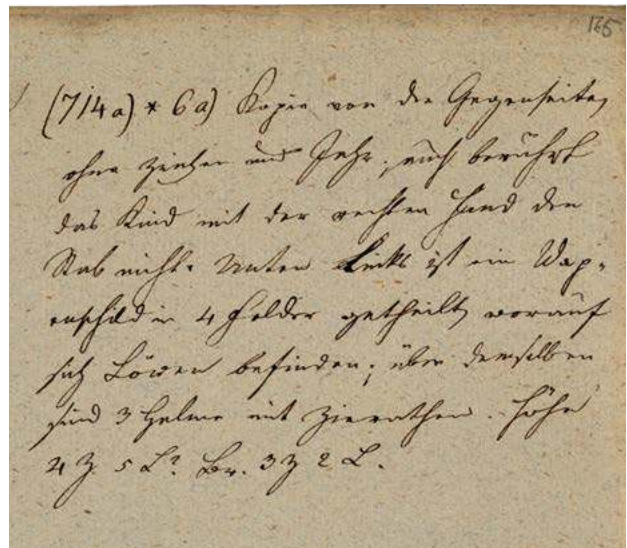 165
(714a) * 6a) Kopie von der Gegenseite,
ohne Zeichen und Jahr; auch berührt
das Kind mit der rechten Hand den
Stab nicht. Unten Links ist ein Wap-
enschild in 4 Felder getheilt, worauf
sich Löwen befinden; über demselben
sind 3 Helme mit Zierathen. Höhe
4 Z. 5 L. Br. 3 Z 2 L.